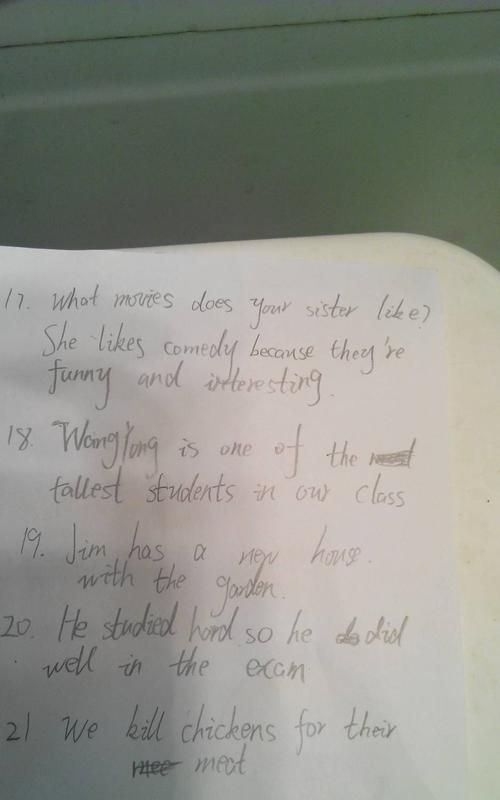 17. What movies does your sister like?
She likes comedy because they're
funny and interesting.
18. WangYong is one of the
tallest students in our class
19. Jim has a new house.
with the garden.
20. He studied hard so he did
well in the exam
21 We kill chickens for their
meat